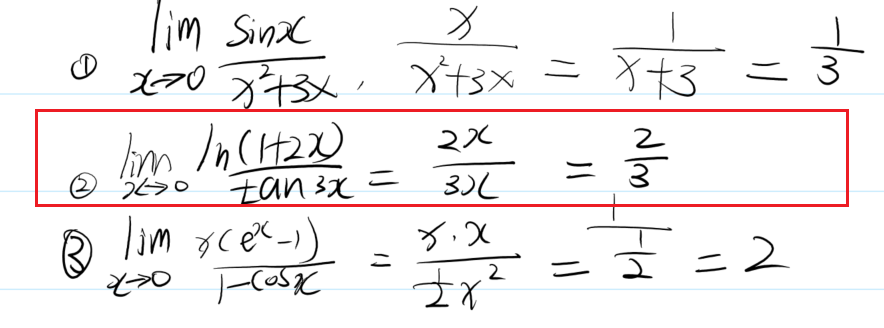 ① lim x→0 sinx/(x²+3x), x/(x²+3x) = 1/(x+3) = 1/3
② lim x→0 ln(1+2x)/tan3x = 2x/3x = 2/3
③ lim x→0 x(eˣ-1)/(1-cosx) = x·x/(1/2 x²) = 1/(1/2) = 2